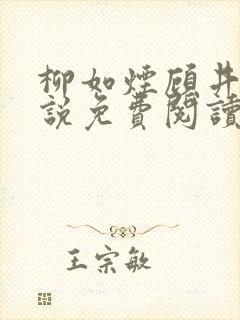 柳如煙顧井
說免費閱讀
王宗敏